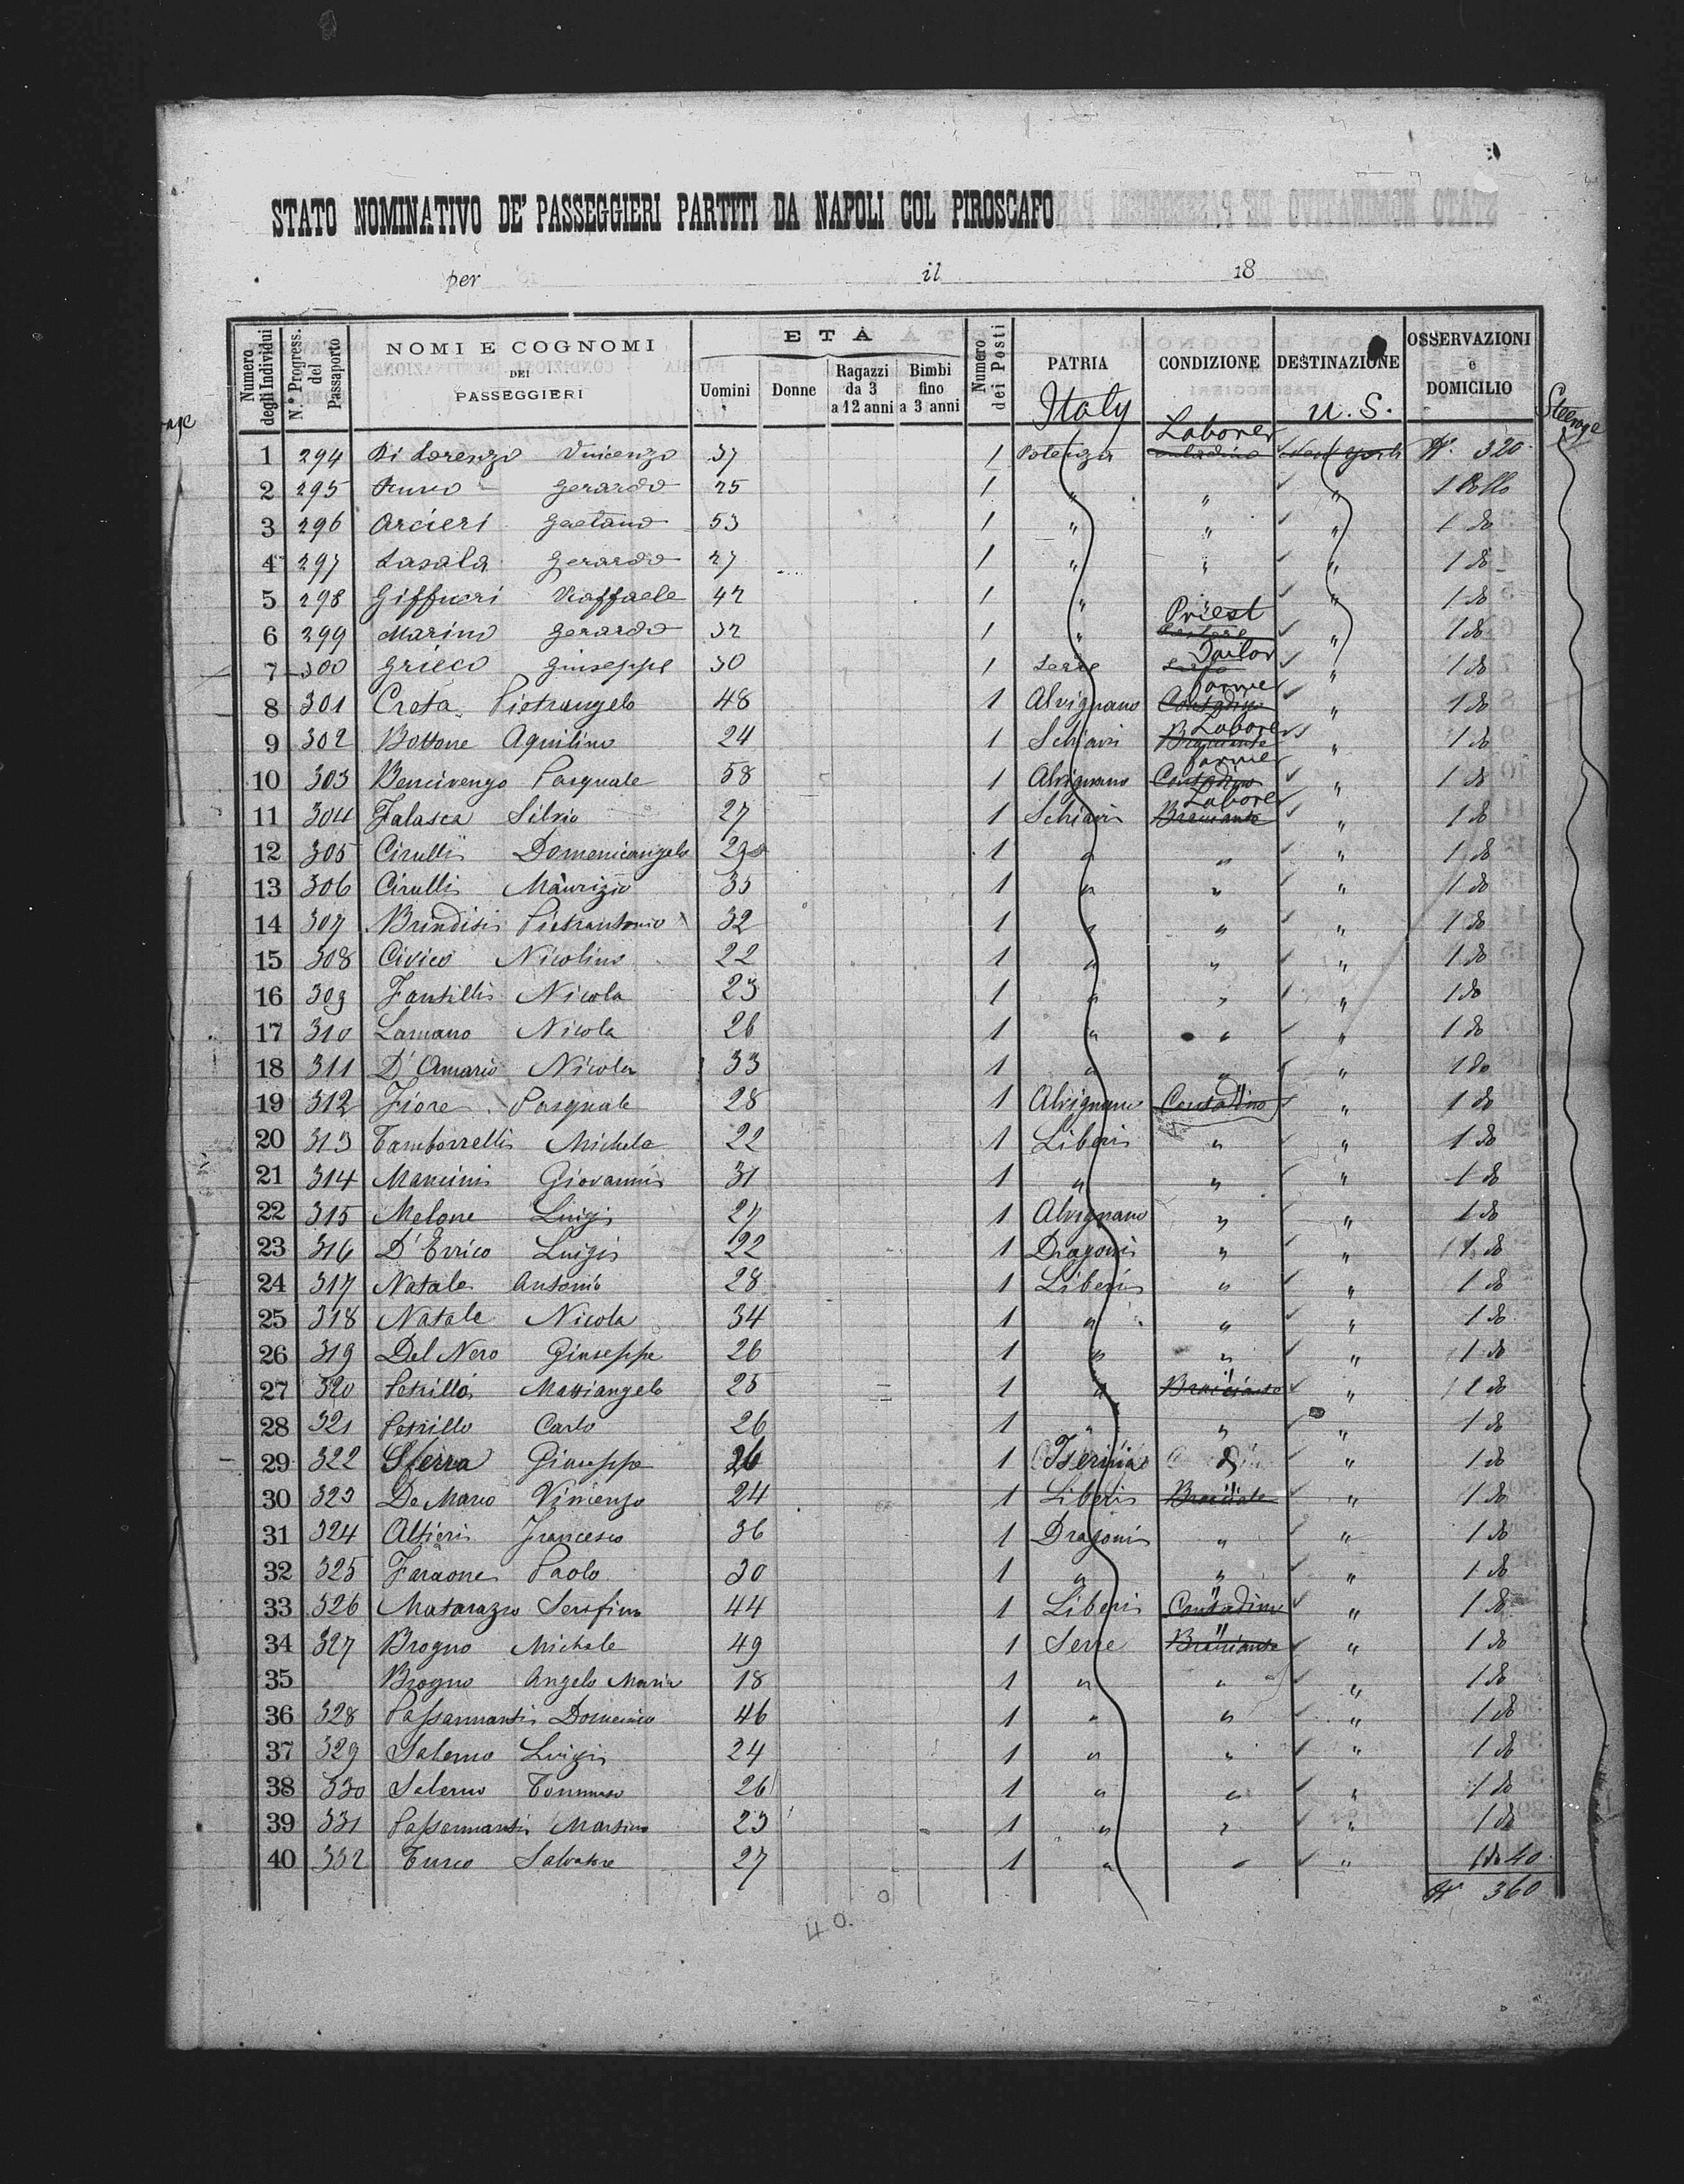 STATO NOMINATIVO DE' PASSEGGIERI PARTITI DA NAPOLI COL PIROSCAFO
per il 18
Numero degli Individui N.° Progress. del Passaporto NOMI E COGNOMI DEI PASSEGGIERI ETÀ Uomini Donne Ragazzi da 3 a 12 anni Bimbi fino a 3 anni Numero dei Posti PATRIA CONDIZIONE DESTINAZIONE OSSERVAZIONI e DOMICILIO
Italy U. S. Steerage
Laborer
1 294 Di Lorenzo Vincenzo 37 1 Potenza Contadino New York 320
2 295 Gerardo 25 1 " " " 1 Collo
3 296 Arcieri Gaetano 53 1 " " " 1 do
4 297 Lasala Gerardo 27 1 " " " 1 do
5 298 Giffueri Raffaele 42 1 " " " 1 do
Priest
6 299 Marino Gerardo 32 1 " " 1 do
Tailor
7 300 Grieco Giuseppe 30 1 Serre " 1 do
Farmer
8 301 Creta Pietrangelo 48 1 Alvignano Contadino " 1 do
Laborer
9 302 Bottone Aquilino 24 1 Schiavi Bracciante " 1 do
Farmer
10 303 Bencivengo Pasquale 58 1 Alvignano Contadino " 1 do
Laborer
11 304 Falasca Silvio 27 1 Schiavi Bracciante " 1 do
12 305 Cirulli Domenicangelo 29 1 " " " 1 do
13 306 Cirulli Maurizio 35 1 " " " 1 do
14 307 Brindisi Pietrantonio 32 1 " " " 1 do
15 308 Civico Nicolino 22 1 " " " 1 do
16 309 Fantilli Nicola 23 1 " " " 1 do
17 310 Lamano Nicola 26 1 " " " 1 do
18 311 D'Amario Nicola 33 1 " " " 1 do
19 312 Fiore Pasquale 28 1 Alvignano Contadino " 1 do
20 313 Tamborrelli Michele 22 1 Liberi " " 1 do
21 314 Mancini Giovanni 31 1 " " " 1 do
22 315 Melone Luigi 27 1 Alvignano " " 1 do
23 316 D'Errico Luigi 22 1 Dragoni " " 1 do
24 317 Natale Antonio 28 1 Liberi " " 1 do
25 318 Natale Nicola 34 1 " " " 1 do
26 319 Del Nero Giuseppe 26 1 " " " 1 do
27 320 Petrillo Mattiangelo 25 1 " Bracciante " 1 do
28 321 Petrillo Carlo 26 1 " " " 1 do
29 322 Sferra Giuseppe 26 1 Isernia " 1 do
30 323 De Marco Vincenzo 24 1 Liberi Bracciante " 1 do
31 324 Altieri Francesco 36 1 Dragoni " " 1 do
32 325 Faraone Paolo 30 1 " " " 1 do
33 326 Matarazzo Serafino 44 1 Liberi Contadino " 1 do
34 327 Brogno Michele 49 1 Serre Bracciante " 1 do
35 Brogno Angelo Maria 18 1 " " " 1 do
36 328 Passannanti Domenico 46 1 " " " 1 do
37 329 Salerno Luigi 24 1 " " " 1 do
38 330 Salerno Tommaso 26 1 " " " 1 do
39 331 Passannanti Martino 23 1 " " " 1 do
40 332 Turco Salvatore 27 1 " " " 1 do 40
360
40.